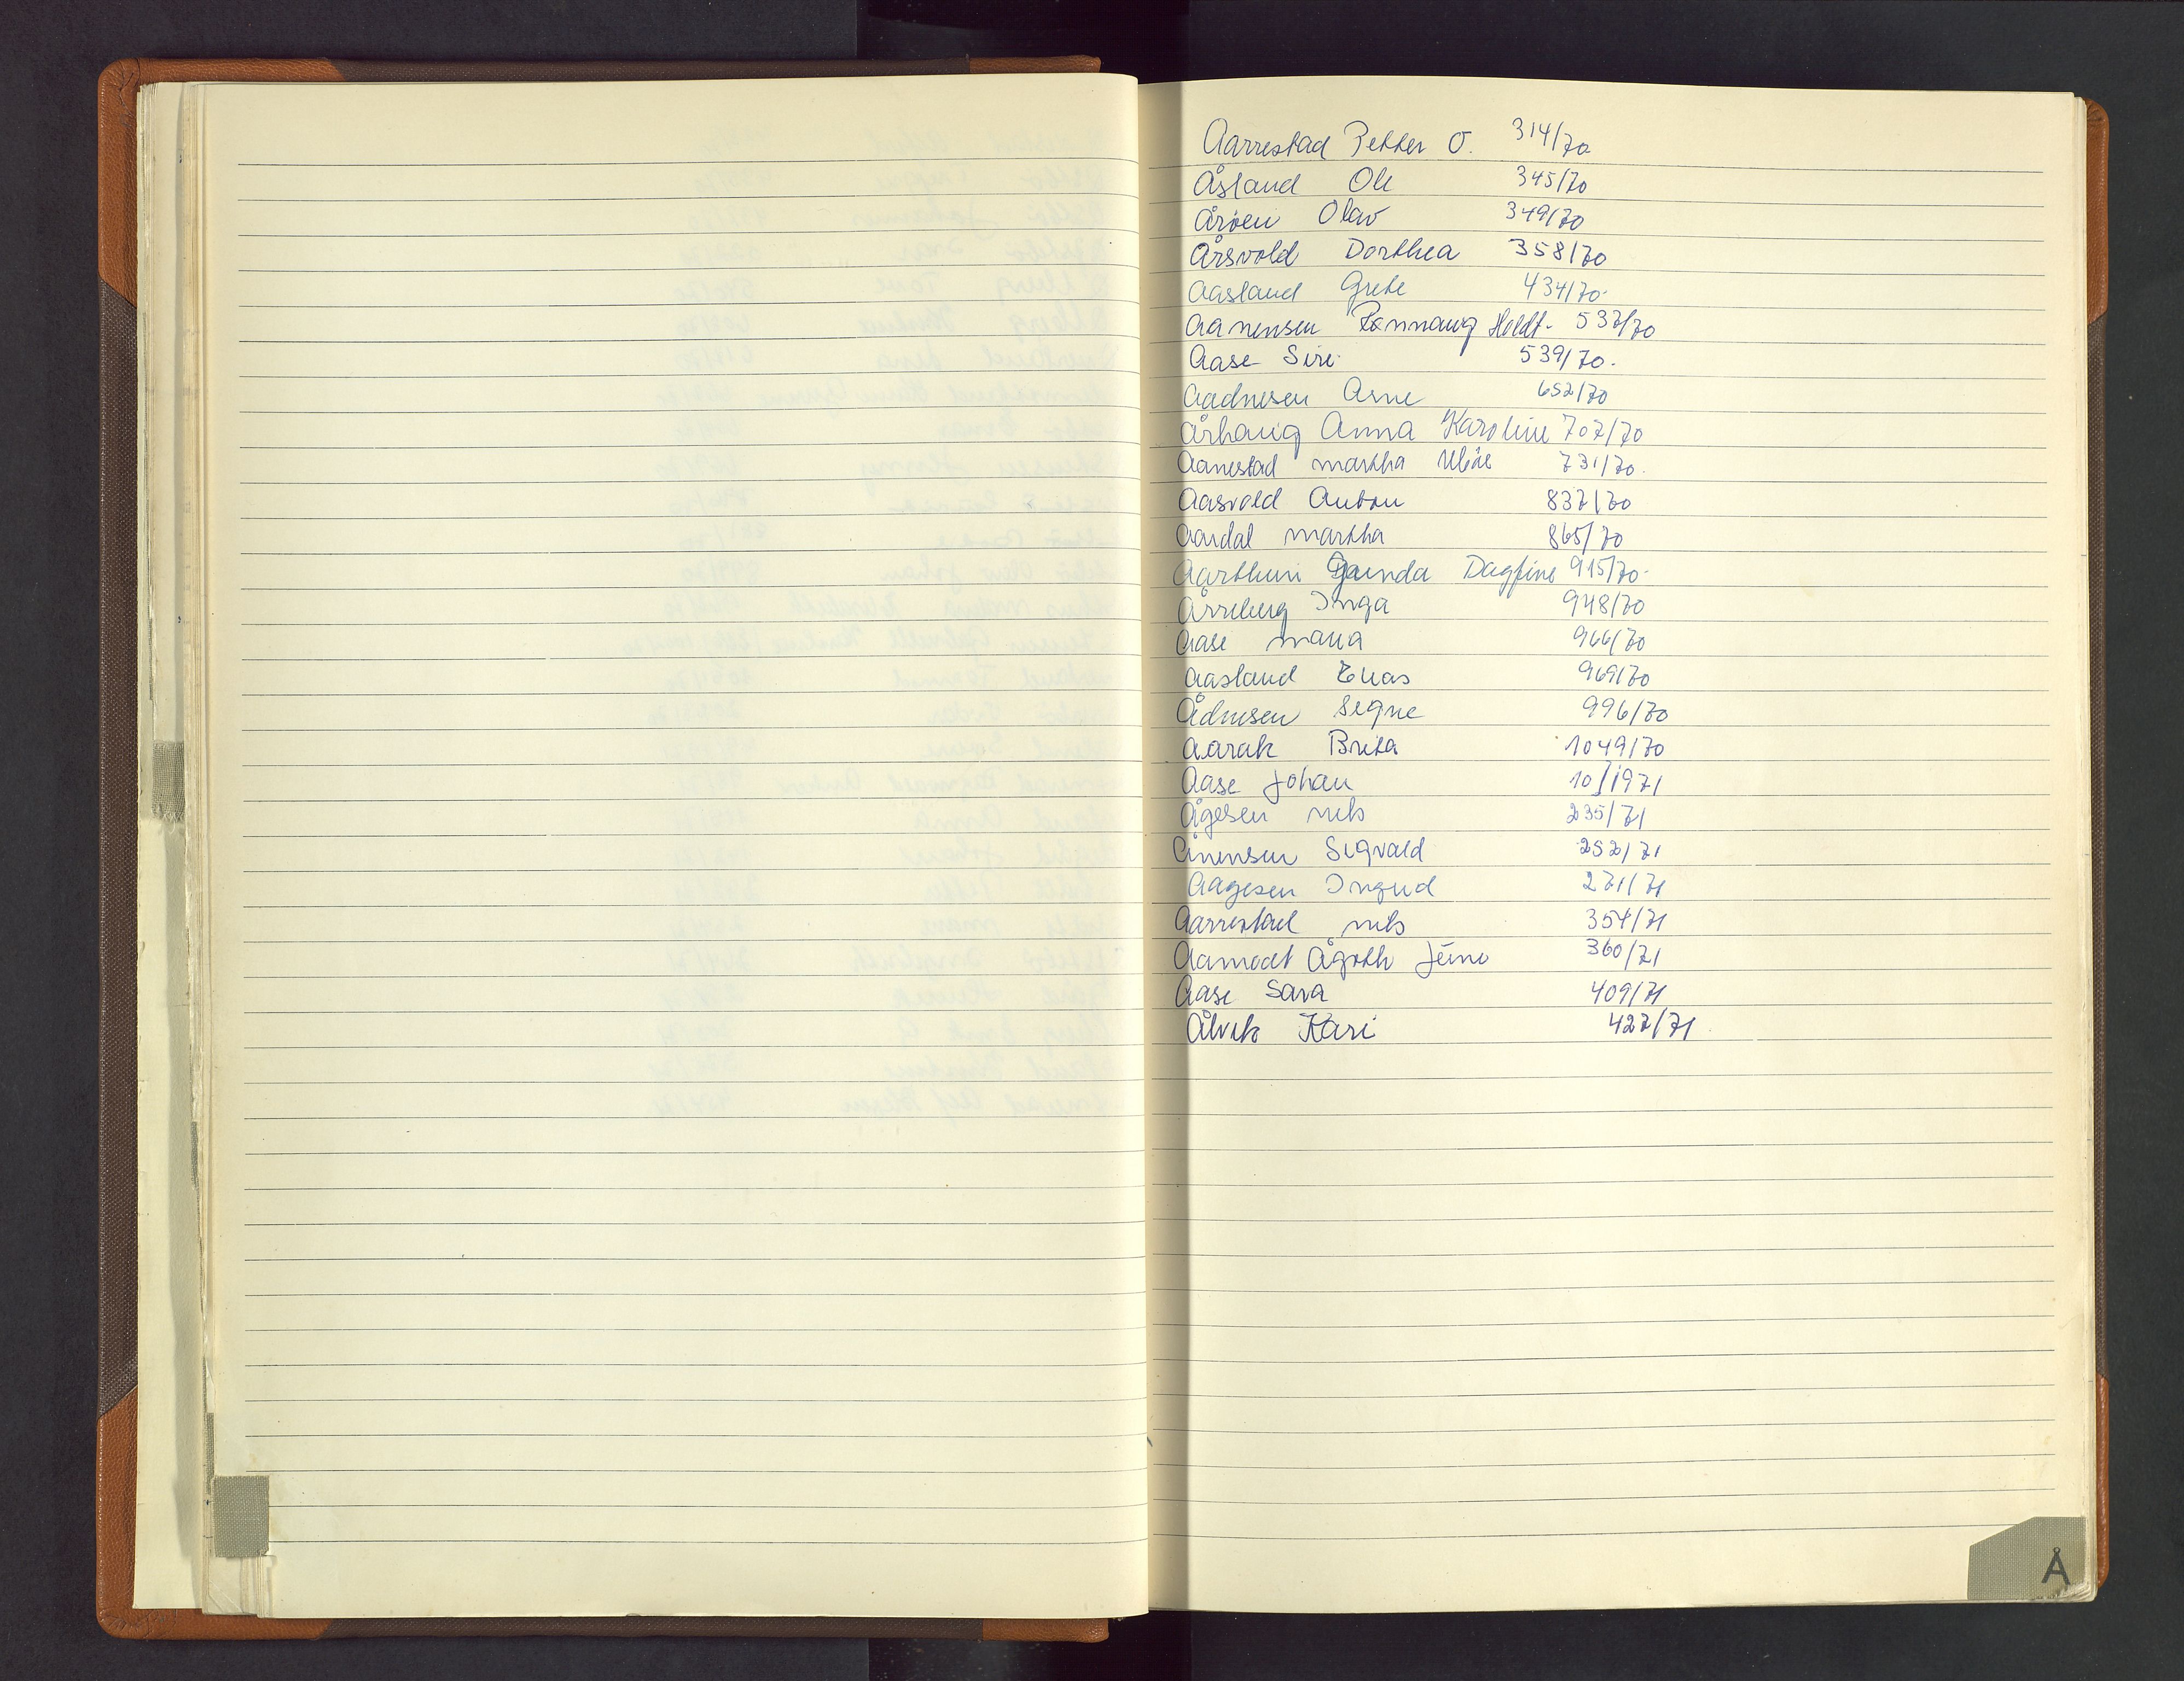 Aarrestad Petter O. 314/70
Åsland Ole 345/70
Årøen Olav 349/70
Årsvold Dorthea 358/70
Aasland Grete 434/70
Aanensen Rannaug Holdt- 537/70
Aase Siri 539/70.
Aadnesen Arne 652/70
Århaug Anna Karoline 707/70
Aanestad Martha 731/70.
Aasvold Anton 837/70
Aardal Martha 865/70
Dagfine 915/70-
Årreberg Inga 948/70
Aase Maria 966/70
Aasland Elias 969/70
Ådnesen Signe 996/70
Aarak Brita 1049/70
Aase Johan 10/1971
Ågesen Nils 235/71
Ånensen Sigvald 252/71
Aagesen Ingrid 271/71
Aarrestad Nils 354/71
Aamodt Ågoth 360/71
Aase Sara 409/71
Ålvik Kari 427/71.
Å